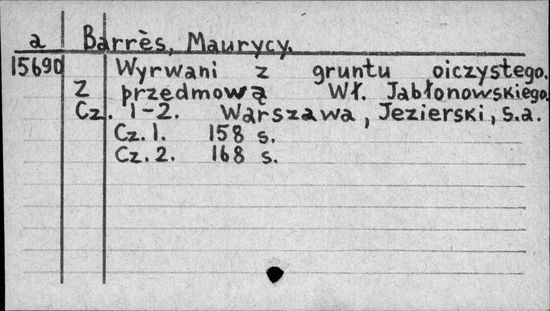 a Barrès, Maurycy.
15690 Wyrwani z gruntu oiczystego.
Z przedmową Wł. Jabłonowskiego
Cz. 1-2. Warszawa, Jezierski, s.a.
Cz. 1. 158 s.
Cz. 2. 168 s.